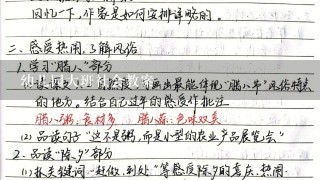 回忆一下，作家是如何安排详略的。
二、感受热闹，了解风俗
1.学习“腊八”部分
画出最能体现“腊八节”风俗特点
的地方。结合自己过年的感受作批注
腊八粥：食材多 腊八蒜：色味双美
(2)品读句子“这不是粥，而是小型的农业产品展览会”
2.品读“除夕”部分
“赶做，到处”等感受除夕的喜庆、热闹
幼儿园大班社会教案